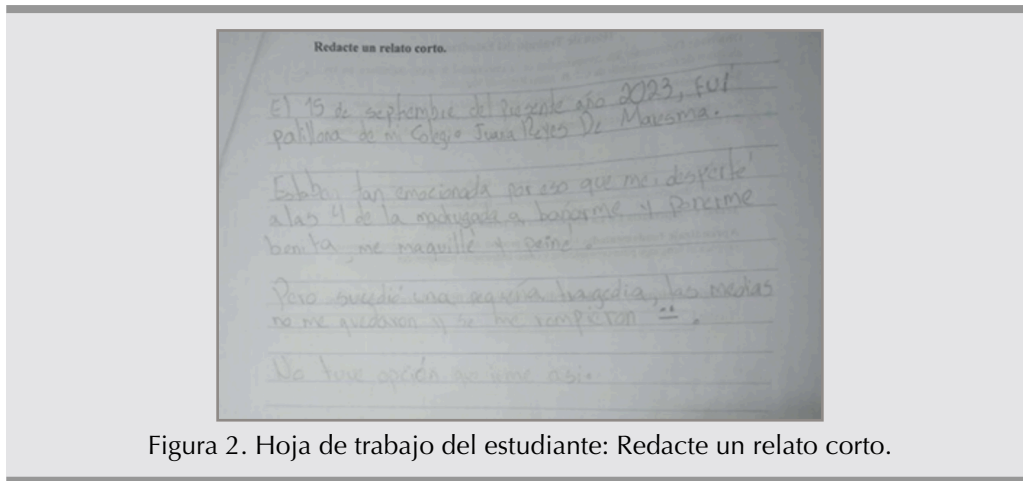 Redacte un relato corto.
El 15 de septiembre del presente año 2023, fuí
palillona de mi Colegio Juana Reyes De
Estaba tan emocionada por eso que me desperté
a las 4 de la madrugada a bañarme y ponerme
bonita, me maquillé y peiné.
Pero sucedió una pequeña tragedia, las medias
no me quedaron y se me rompieron
No tuve opción que irme así.
Figura 2. Hoja de trabajo del estudiante: Redacte un relato corto.